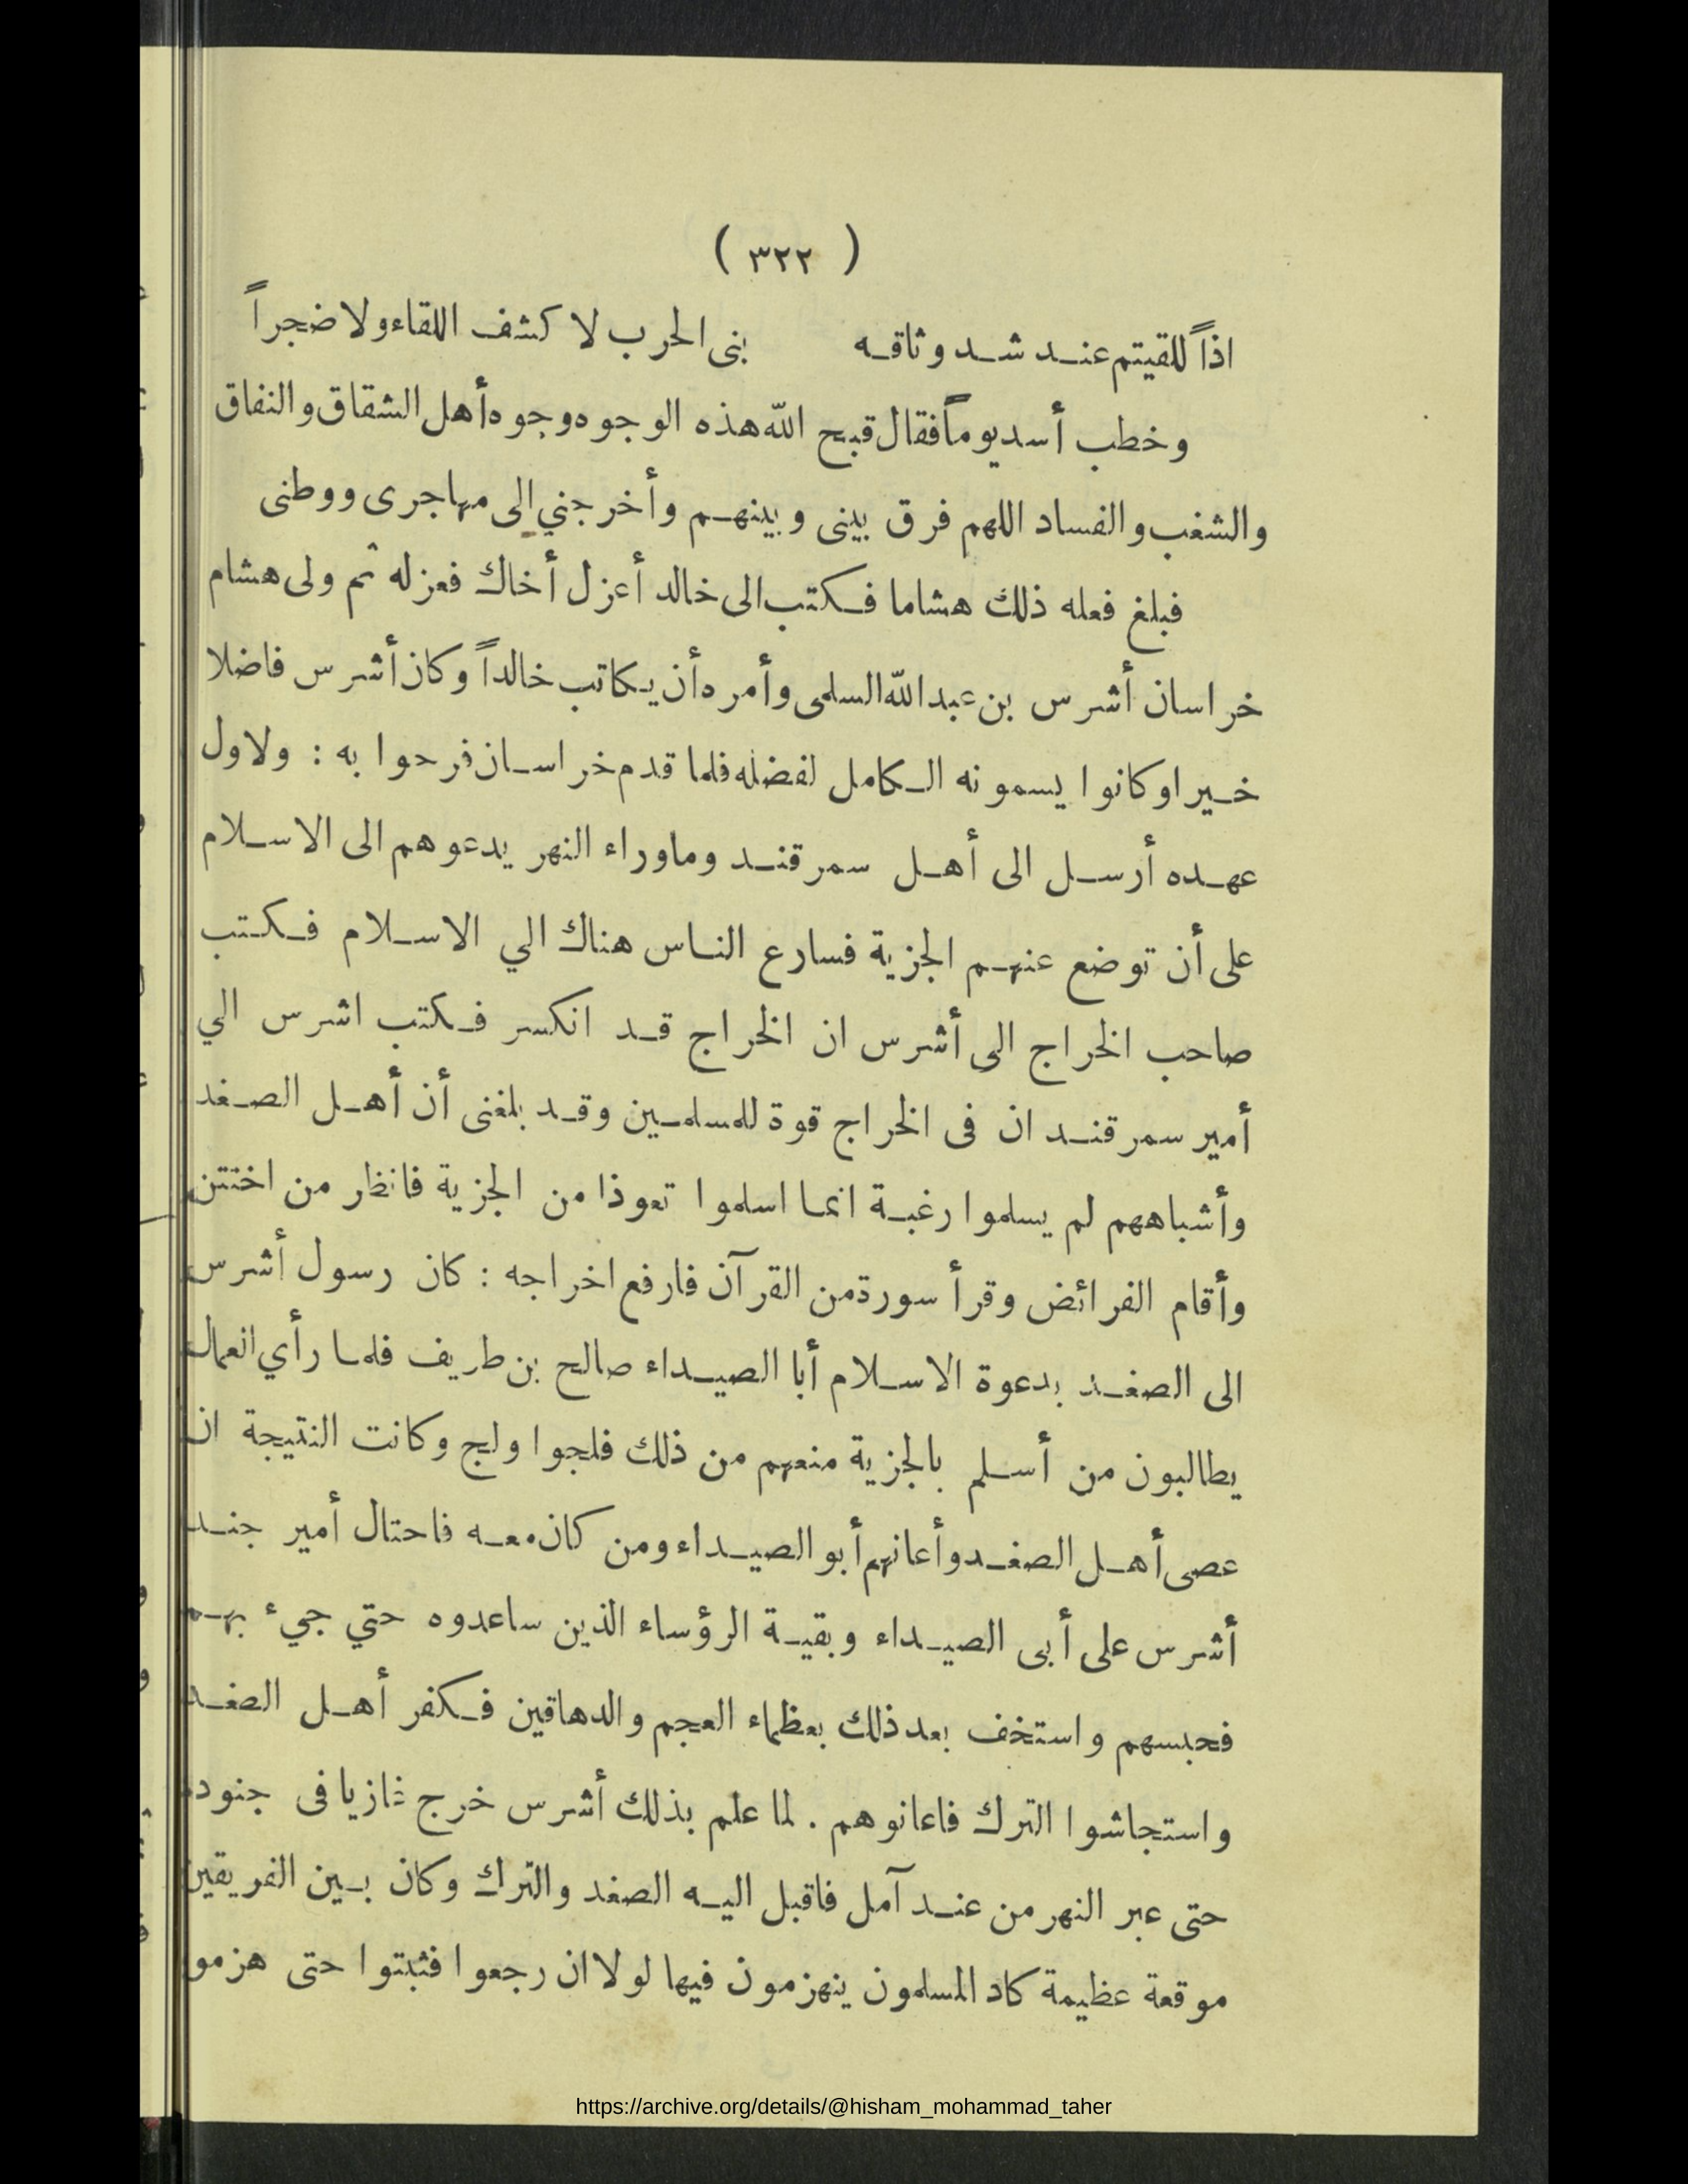 ( ٣٢٢ )
اذاً للقيتم عند شد وثاقه بنى الحرب لا كشف اللقاء ولا ضجراً
وخطب أسد يوماً فقال قبح الله هذه الوجوه وجوه أهل الشقاق والنفاق
والشغب والفساد اللهم فرق بينى وبينهم وأخرجني إلى مهاجرى ووطنى
فبلغ فعله ذلك هشاما فكتب الى خالد أعزل أخاك فعزله ثم ولى هشام
خراسان أشرس بن عبد الله السلمى وأمره أن يكاتب خالداً وكان أشرس فاضلا
خيرا وكانوا يسمونه الكامل لفضله فلما قدم خراسان فرحوا به : ولاول
عهده أرسل الى أهل سمرقند وماوراء النهر يدعوهم الى الاسلام
على أن توضع عنهم الجزية فسارع الناس هناك الي الاسلام فكتب
صاحب الخراج الى أشرس ان الخراج قد انكسر فكتب اشرس الي
أمير سمرقند ان فى الخراج قوة للمسلمين وقد بلغنى أن أهل الصغد
وأشباههم لم يسلموا رغبة انما اسلموا تعوذا من الجزية فانظر من اختتن
وأقام الفرائض وقرأ سورة من القرآن فارفع اخراجه : كان رسول أشرس
الى الصغد بدعوة الاسلام أبا الصيداء صالح بن طريف فلما رأي العمال
يطالبون من أسلم بالجزية منعهم من ذلك فلجوا ولج وكانت النتيجة ان
عصى أهل الصغد وأعانهم أبو الصيداء ومن كان معه فاحتال أمير جند
أشرس على أبى الصيداء وبقية الرؤساء الذين ساعدوه حتي جيء بهم
فحبسهم واستخف بعد ذلك بعظماء العجم والدهاقين فكفر أهل الصغد
واستجاشوا الترك فاعانوهم . لما علم بذلك أشرس خرج غازيا فى جنوده
حتى عبر النهر من عند آمل فاقبل اليه الصغد والترك وكان بين الفريقين
موقعة عظيمة كاد المسلمون ينهزمون فيها لولا ان رجعوا فثبتوا حتى هزموا
https://archive.org/details/@hisham_mohammad_taher